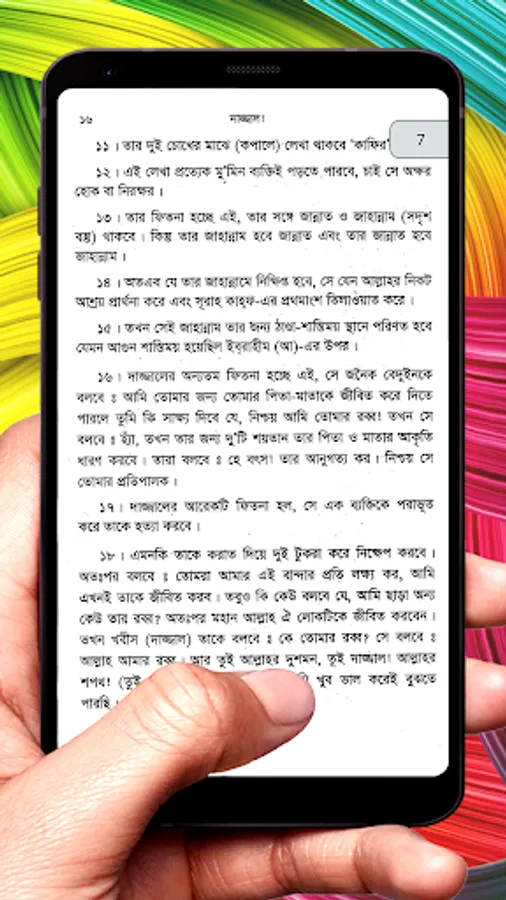 ১৬ দাজ্জাল।
7
১১। তার দুই চোখের মাঝে (কপালে) লেখা থাকবে 'কাফির'
১২। এই লেখা প্রত্যেক মু'মিন ব্যক্তিই পড়তে পারবে, চাই সে অক্ষর
হোক বা নিরক্ষর।
১৩। তার ফিতনা হচ্ছে এই, তার সঙ্গে জান্নাত ও জাহান্নাম (সদৃশ
বস্তু) থাকবে। কিন্তু তার জাহান্নাম হবে জান্নাত এবং তার জান্নাত হবে
জাহান্নাম।
১৪। অতএব যে তার জাহান্নামে নিক্ষিপ্ত হবে, সে যেন আল্লাহর নিকট
আশ্রয় প্রার্থনা করে এবং সূরাহ কাহ্ফ-এর প্রথমাংশ তিলাওয়াত করে।
১৫। তখন সেই জাহান্নাম তার জন্য ঠাণ্ডা-শান্তিময় স্থানে পরিণত হবে
যেমন আগুন শান্তিময় হয়েছিল ইব্রাহীম (আ)-এর উপর।
১৬। দাজ্জালের অন্যতম ফিতনা হচ্ছে এই, সে জনৈক বেদুইনকে
বলবে ঃ আমি তোমার জন্য তোমার পিতা-মাতাকে জীবিত করে দিতে
পারলে তুমি কি সাক্ষ্য দিবে যে, নিশ্চয় আমি তোমার রব্ব! তখন সে
বলবে ঃ হ্যাঁ, তখন তার জন্য দু'টি শয়তান তার পিতা ও মাতার আকৃতি
ধারণ করবে। তারা বলবে ঃ হে বৎস! তার আনুগত্য কর। নিশ্চয় সে
তোমার প্রতিপালক।
১৭। দাজ্জালের আরেকটি ফিতনা হল, সে এক ব্যক্তিকে পরাভূত
করে তাকে হত্যা করবে।
১৮। এমনকি তাকে করাত দিয়ে দুই টুকরা করে নিক্ষেপ করবে।
অতঃপর বলবে ঃ তোমরা আমার এই বান্দার প্রতি লক্ষ্য কর, আমি
এখনই তাকে জীবিত করব। তবুও কি কেউ বলবে যে, আমি ছাড়া অন্য
কেউ তার রব্ব? অতঃপর মহান আল্লাহ ঐ লোকটিকে জীবিত করবেন।
তখন খবীস (দাজ্জাল) তাকে বলবে ঃ কে তোমার রব্ব? সে বলবে ঃ
আল্লাহ আমার রব্ব। আর তুই আল্লাহর দুশমন, তুই দাজ্জাল! আল্লাহর
শপথ! (তুই খুব ভাল করেই বুঝতে
পারছি।